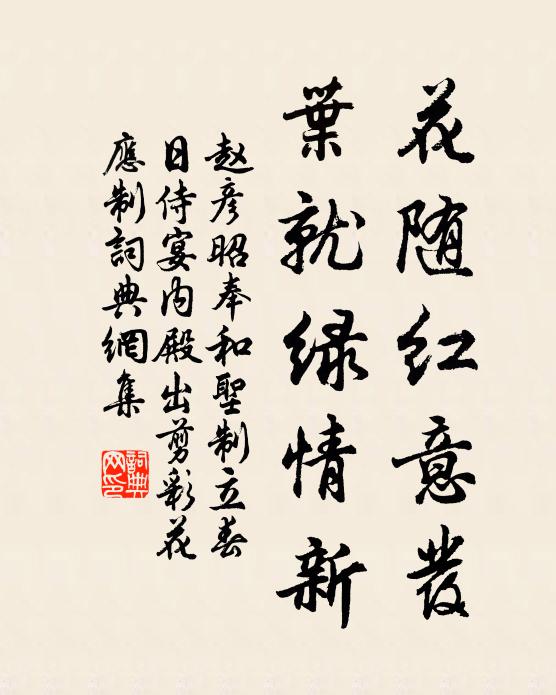 花随红意發
葉就绿情新
赵彦昭奉和聖制立春
日侍宴内殿出剪彩花
應制詞典網集
詞典
网印